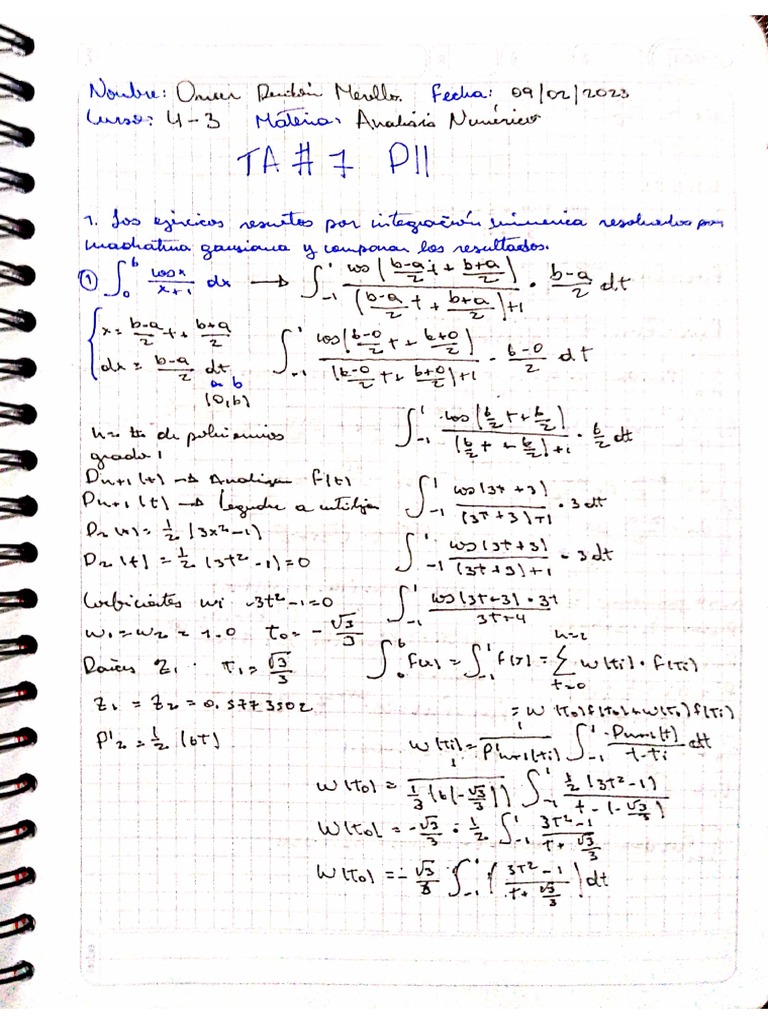 Nombre: Omar Fecha: 09/02/2023
Curso: 4-3 Materia: Analisis Numérico
TA # 7 P11
1. Los ejercicios resueltos por integración numerica resolverlos por
cuadratura gausiana y comparar los resultados.
① ∫_0^6 cosx/(x+1) dx → ∫_-1^1 cos((b-a)/2 t + (b+a)/2)/(((b-a)/2 t + (b+a)/2)+1) · (b-a)/2 dt
{x = (b-a)/2 t + (b+a)/2
{dx = (b-a)/2 dt
∫_-1^1 cos((6-0)/2 t + (6+0)/2)/(((6-0)/2 t + (6+0)/2)+1) · (6-0)/2 dt
a b
(0,6)
∫_-1^1 cos(6/2 t + 6/2)/((6/2 t + 6/2)+1) · 6/2 dt
n = # de polinomios
grado 1
Pn+1 (t) → Analizar f(t)
Pn+1 (t) → Legendre a utilizar
∫_-1^1 cos(3t+3)/((3t+3)+1) · 3dt
P2 (x) = 1/2 (3x²-1)
P2 (t) = 1/2 (3t²-1) = 0
∫_-1^1 cos(3t+3)/((3t+3)+1) · 3dt
Coeficientes wi 3t²-1=0
∫_-1^1 cos(3t+3) · 3t/(3t+4)
w1 = w2 = 1.0 t0 = -√3/3
Raices Z1 . T1 = √3/3
∫_0^6 F(x) = ∫_-1^1 f(T) = Σ_{t=0}^{n=2} w(Ti) · f(Ti)
Z1 = Z2 = 0.5773502
= w(T0)f(T0)+w(T1)f(Ti)
P'2 = 1/2 (6T)
w(Ti) = 1/P'n+1(ti) ∫_-1^1 Pn+1(t)/(t-ti) dt
w(T0) = 1/(1/3 (6(-√3/3))) ∫_-1^1 1/2 (3T²-1)/(t-(-√3/3))
w(T0) = -√3/3 · 1/2 ∫_-1^1 (3T²-1)/(T+√3/3)
w(T0) = -√3/3 ∫_-1^1 ((3T²-1)/(t+√3/3)) dt